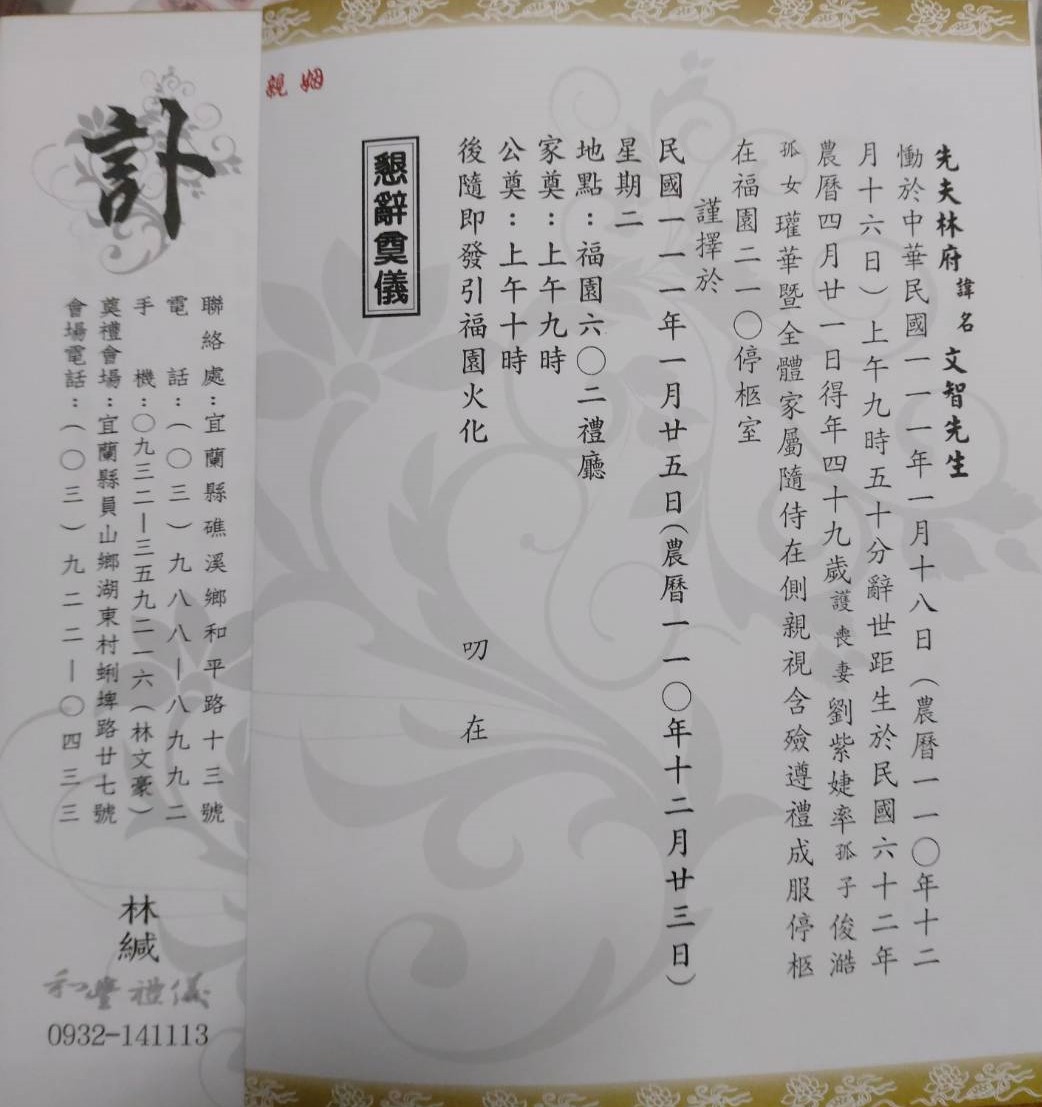 先夫林府諱名文智先生
慟於中華民國一一一年一月十八日（農曆一一〇年十二
月十六日）上午九時五十分辭世距生於民國六十二年
農曆四月廿一日得年四十九歲護喪妻劉紫婕率孤子俊澔
孤女瓘華暨全體家屬隨侍在側親視含殮遵禮成服停柩
在福園二一〇停柩室
謹擇於
民國一一一年一月廿五日（農曆一一〇年十二月廿三日）
星期二
地點：福園六〇二禮廳
家奠：上午九時
公奠：上午十時
後隨即發引福園火化
叨在
懇辭奠儀
姻親
訃
聯絡處：宜蘭縣礁溪鄉和平路十三號
電話：（〇三）九八八－八九九二
手機：〇九三二－三五九二一六（林文豪）
奠禮會場：宜蘭縣員山鄉湖東村蜊埤路廿七號
會場電話：（〇三）九二二－〇四三三
林緘
和豐禮儀
0932-141113